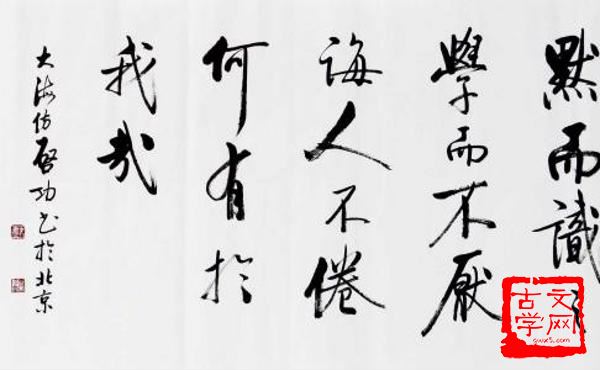 默而識之
學而不厭
誨人不倦
何有於
我哉
大海仿啓功书於北京
古文
学网
gwx5.com